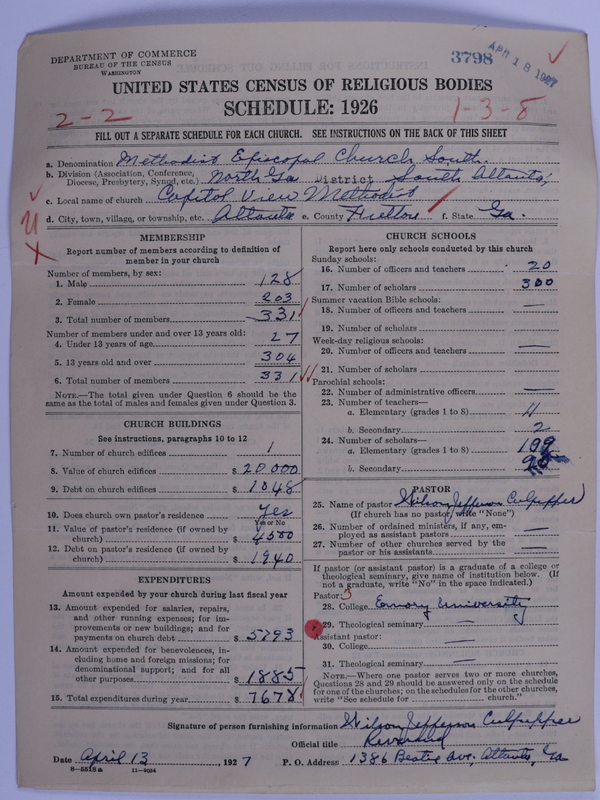 DEPARTMENT OF COMMERCE
BUREAU OF THE CENSUS
WASHINGTON
3798 APR 18 1927
UNITED STATES CENSUS OF RELIGIOUS BODIES
SCHEDULE: 1926
2-2 1-3-8
FILL OUT A SEPARATE SCHEDULE FOR EACH CHURCH. SEE INSTRUCTIONS ON THE BACK OF THIS SHEET
a. Denomination Methodist Episcopal Church, South.
b. Division (Association, Conference, Diocese, Presbytery, Synod, etc.) North Ga District South Atlanta,
c. Local name of church Capitol View Methodist
d. City, town, village, or township, etc. Atlanta e. County Fulton f. State Ga.
MEMBERSHIP
Report number of members according to definition of member in your church
Number of members, by sex:
1. Male 128
2. Female 203
3. Total number of members 331
Number of members under and over 13 years old:
4. Under 13 years of age 27
5. 13 years old and over 304
6. Total number of members 331
NOTE.—The total given under Question 6 should be the same as the total of males and females given under Question 3.
CHURCH BUILDINGS
See instructions, paragraphs 10 to 12
7. Number of church edifices 1
8. Value of church edifices $ 20.000
9. Debt on church edifices $ 1048
10. Does church own pastor's residence Yes
Yes or No
11. Value of pastor's residence (if owned by church) $ 4500
12. Debt on pastor's residence (if owned by church) $ 1940
EXPENDITURES
Amount expended by your church during last fiscal year
13. Amount expended for salaries, repairs, and other running expenses; for improvements or new buildings; and for payments on church debt $ 5793
14. Amount expended for benevolences, including home and foreign missions; for denominational support; and for all other purposes $ 1885
15. Total expenditures during year $ 7678
CHURCH SCHOOLS
Report here only schools conducted by this church
Sunday schools:
16. Number of officers and teachers 20
17. Number of scholars 300
Summer vacation Bible schools:
18. Number of officers and teachers —
19. Number of scholars
Week-day religious schools:
20. Number of officers and teachers —
21. Number of scholars
Parochial schools:
22. Number of administrative officers —
23. Number of teachers—
a. Elementary (grades 1 to 8) 4
b. Secondary 2
24. Number of scholars—
a. Elementary (grades 1 to 8) 199
b. Secondary
PASTOR
25. Name of pastor Wilson Jefferson Culpepper
(If church has no pastor, write "None")
26. Number of ordained ministers, if any, employed as assistant pastors —
27. Number of other churches served by the pastor or his assistants —
If pastor (or assistant pastor) is a graduate of a college or theological seminary, give name of institution below. (If not a graduate, write "No" in the space indicated.)
Pastor: 3
28. College Emory University
29. Theological seminary —
Assistant pastor:
30. College —
31. Theological seminary —
NOTE.—Where one pastor serves two or more churches, Questions 28 and 29 should be answered only on the schedule for one of the churches; on the schedules for the other churches, write "See schedule for church."
Signature of person furnishing information Wilson Jefferson Culpepper
Official title Reverend
Date April 13, 1927 P. O. Address 1386 Beatie Ave, Atlanta, Ga
8—5518a 11—9034